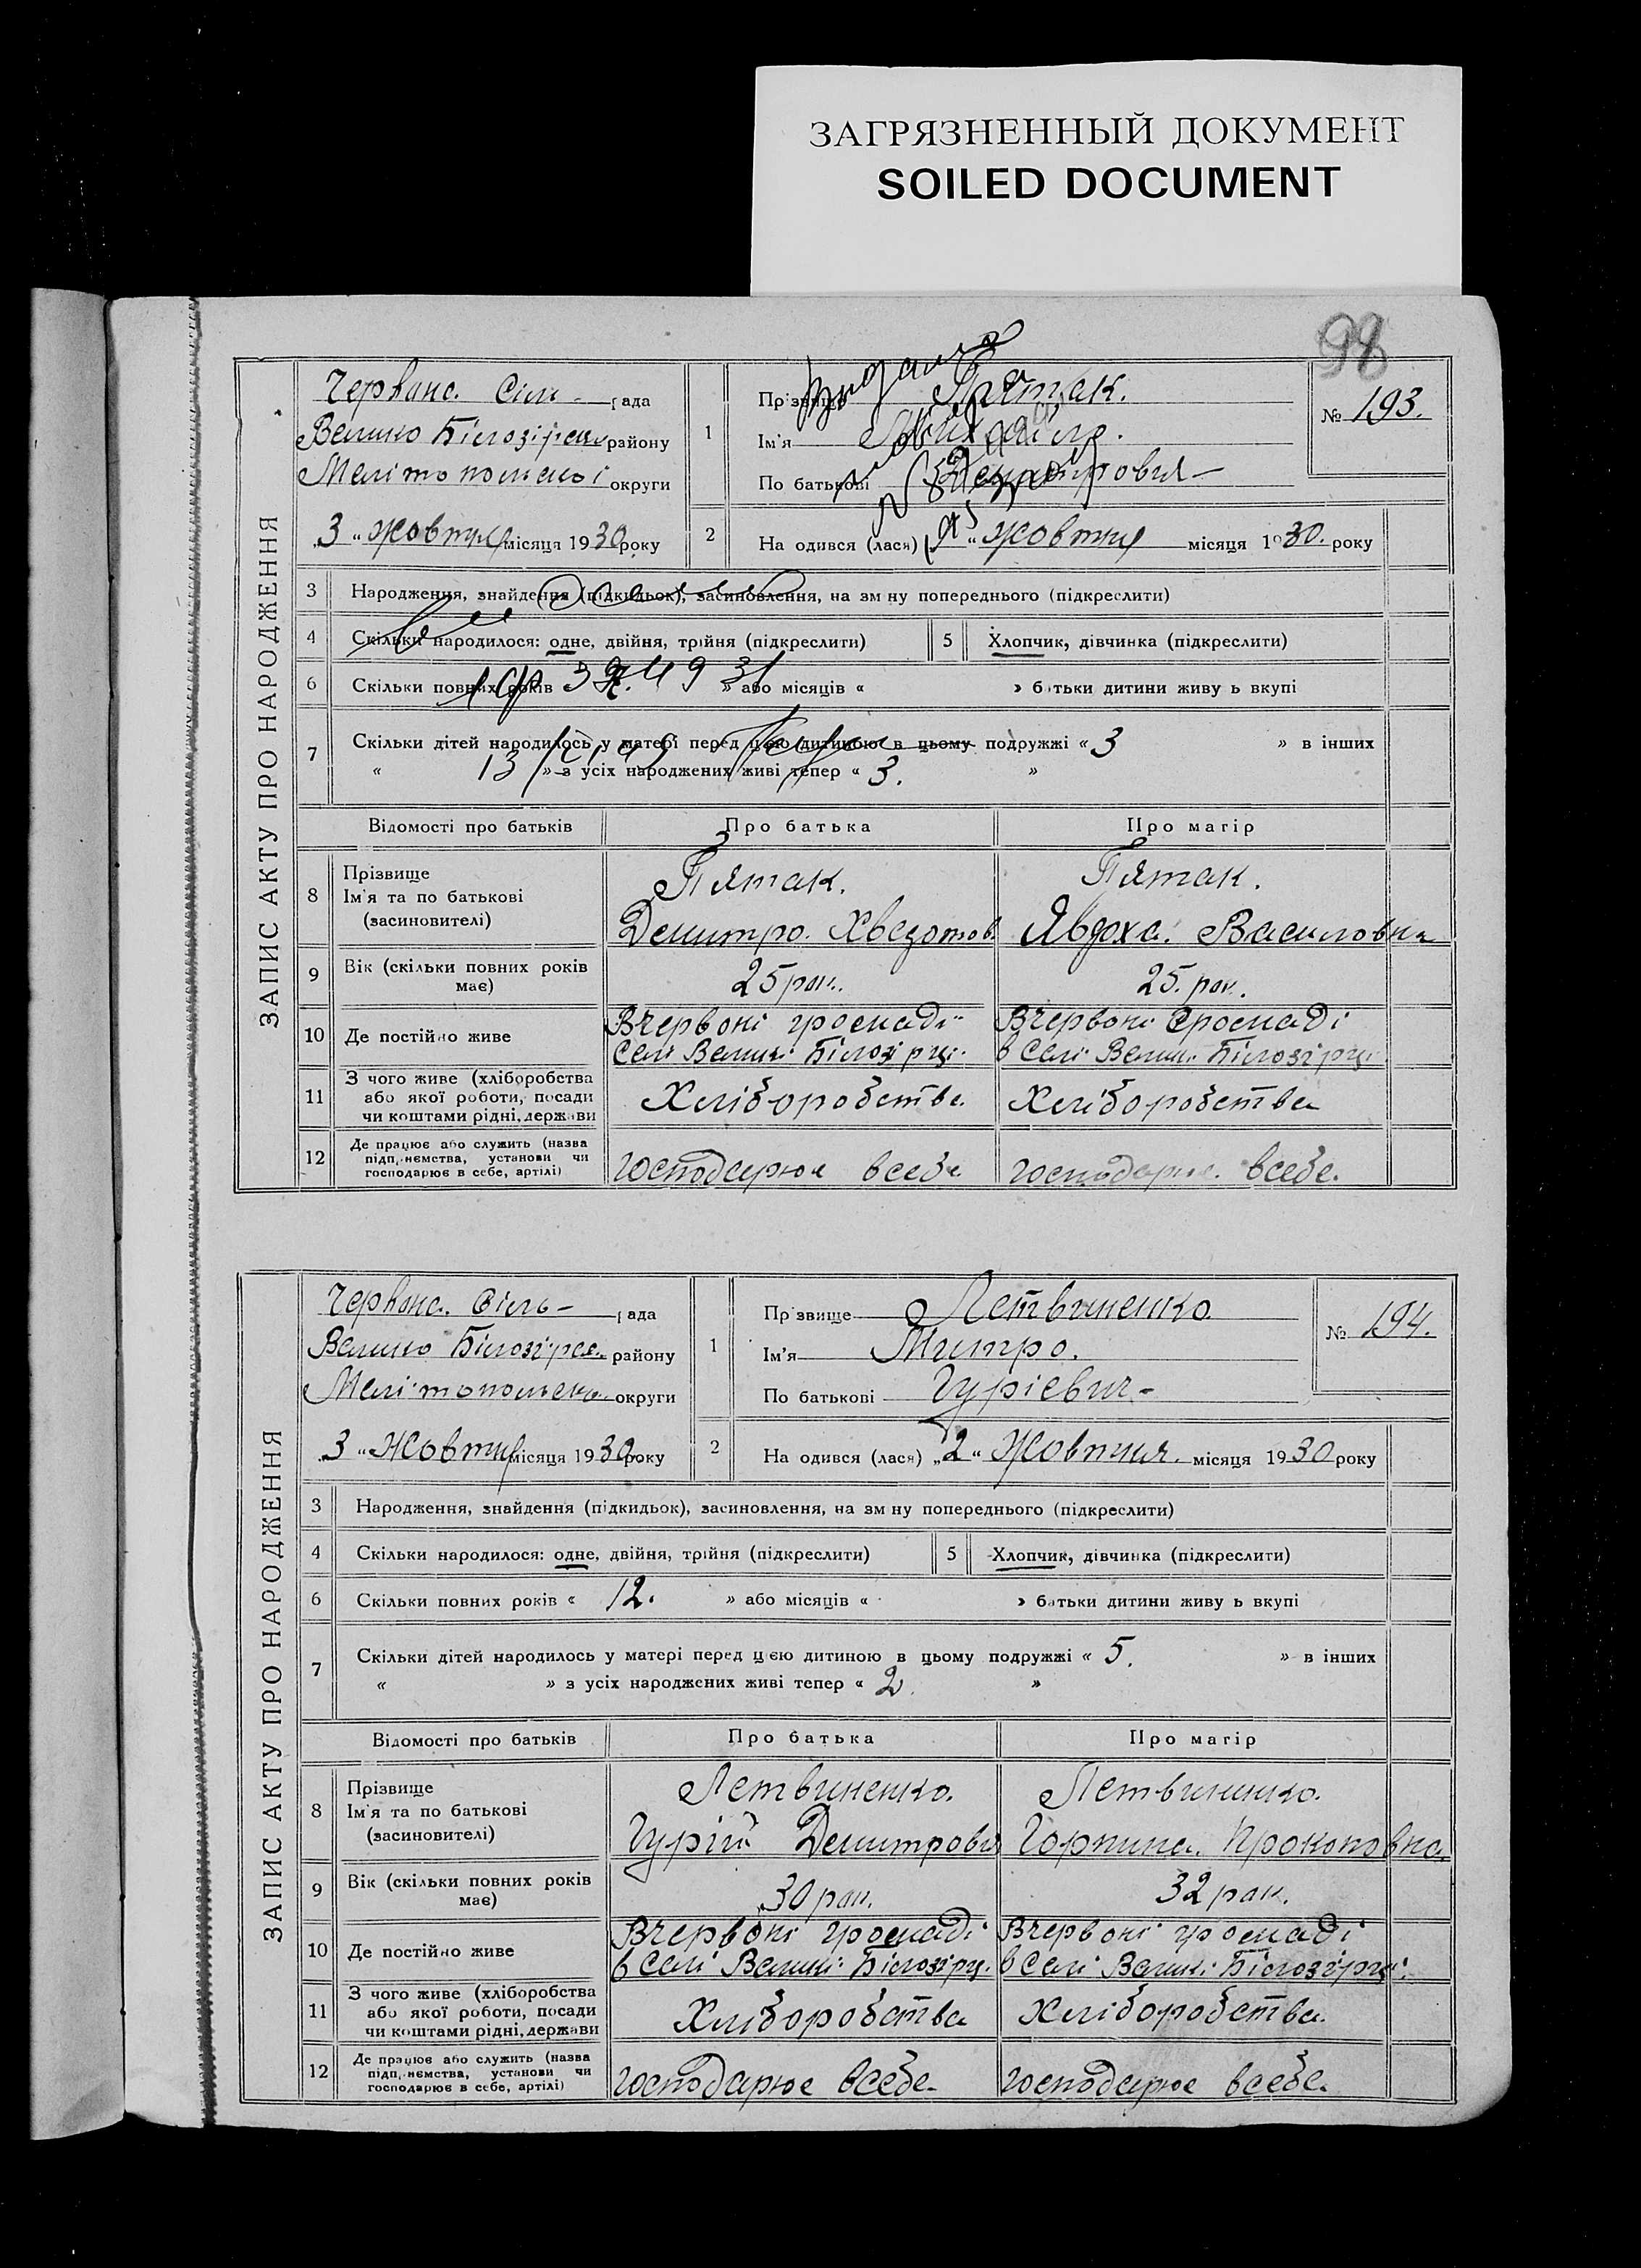 ЗАГРЯЗНЕННЫЙ ДОКУМЕНТ
SOILED DOCUMENT
98
ЗАПИС АКТУ ПРО НАРОДЖЕННЯ
Червона. Сіль- рада
Велико Білозірсц району
Мелітопольскоі округи
3 " Жовтня місяця 1930 року
1
Прізвище Пятак.
Ім'я Михайло.
По батькові Демитрович
№ 193.
2
На одився (лася) " Жовтня місяця 1930. року
3 Народження, знайдення (підкидьок), засиновлення, на зм ну попереднього (підкреслити)
4 Скільки народилося: одне, двійня, трійня (підкреслити) 5 Хлопчик, дівчинка (підкреслити)
6 Скільки повних років » або місяців « » батьки дитини живу ь вкупі
7 Скільки дітей народилось у матері перед цією дитиною в цьому подружжі « 3 » в інших
« » з усіх народжених живі тепер « 3. »
Відомості про батьків Про батька Про матір
8 Прізвище Ім'я та по батькові (засиновителі)
Пятак. Пятак.
Демитро. Хведотов Явдоха. Василовна
9 Вік (скільки повних років має) 25 рок. 25. рок.
10 Де постійно живе
Вчервоні громаді Вчервоні громаді
Селі Велики Білозірці. в Селі Велик. Білозірці
11 З чого живе (хліборобства
або якої роботи, посади
чи коштами рідні, держави
Хліборобства. Хліборобства
12 Де працює або служить (назва
підп, нємства, установи чи
господарює в себе, артілі)
господарює всебе господарює. всебе.
ЗАПИС АКТУ ПРО НАРОДЖЕННЯ
Червона. Сіль- рада
Велико Білозірсе. району
Мелітопольско. округи
3 " Жовтня місяця 1930 року
1
Прізвище Летвиненко.
Ім'я Митро.
По батькові Гурієвич-
№ 194.
2
На одився (лася) „2 " Жовтня. місяця 1930 року
3 Народження, знайдення (підкидьок), засиновлення, на зм ну попереднього (підкреслити)
4 Скільки народилося: одне, двійня, трійня (підкреслити) 5 Хлопчик, дівчинка (підкреслити)
6 Скільки повних років « 12. » або місяців « » батьки дитини живу ь вкупі
7 Скільки дітей народилось у матері перед цією дитиною в цьому подружжі « 5. » в інших
« » з усіх народжених живі тепер « 2 »
Відомості про батьків Про батька Про матір
8 Прізвище Ім'я та по батькові (засиновителі)
Летвиненко. Летвининко.
Гурій Демитрович Горпина. Прокоповна.
9 Вік (скільки повних років має) 30 рок. 32 рок.
10 Де постійно живе
Вчервоні громаді Вчервоні громаді
в Селі Велики Білозірц. в Селі Велики Білозірці.
11 З чого живе (хліборобства
або якої роботи, посади
чи коштами рідні, держави
Хліборобства Хліборобства.
12 Де працює або служить (назва
підп, нємства, установи чи
господарює в себе, артілі)
господарює всебе- господарює всебе.